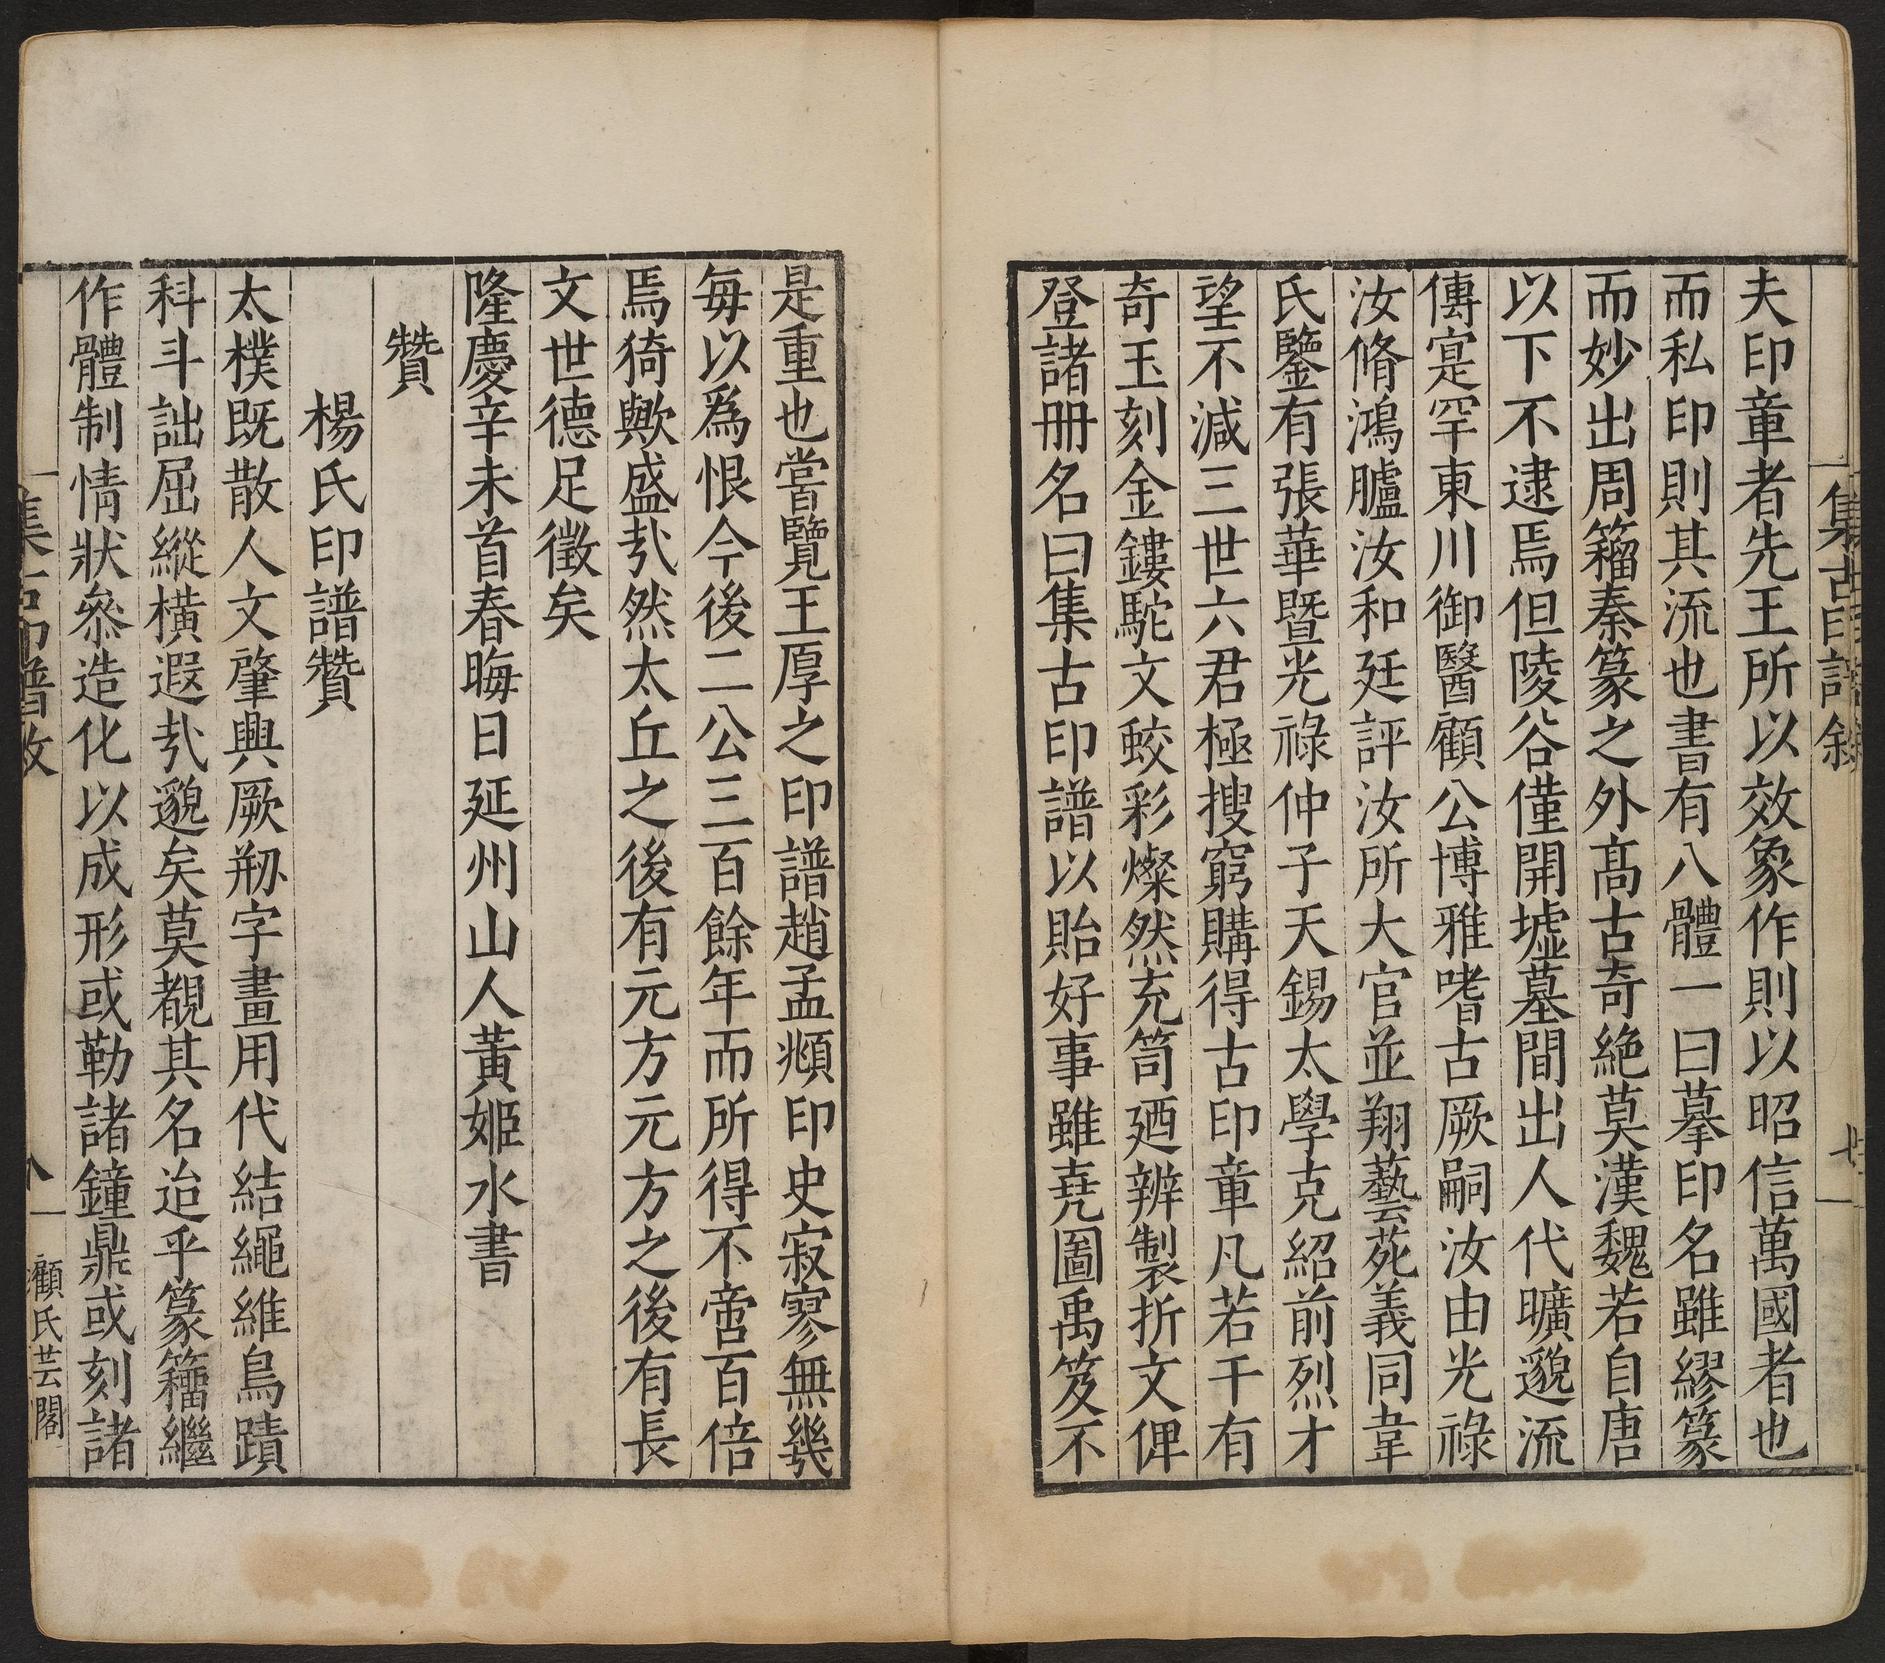 夫印章者先王所以效象作則以昭信萬國者也
而私印則其流也書有八體一曰摹印名雖繆篆
而妙出周籀秦篆之外高古奇絶莫漢魏若自唐
以下不逮焉但陵谷僅開墟墓間出人代曠邈流
傳寔罕東川御醫顧公博雅嗜古厥嗣汝由光祿
汝脩鴻臚汝和廷評汝所大官並翔藝苑義同韋
氏鑒有張華暨光祿仲子天錫太學克紹前烈才
望不減三世六君極搜窮購得古印章凡若干有
奇玉刻金鏤駝文蛟彩燦然充笥廼辨製折文俾
登諸册名曰集古印譜以貽好事雖尭圖禹笈不
是重也嘗覽王厚之印譜趙孟頫印史寂寥無幾
每以爲恨今後二公三百餘年而所得不啻百倍
焉猗歟盛㢤然太丘之後有元方元方之後有長
文世德足徵矣
隆慶辛未首春晦日延州山人黃姬水書
贊
楊氏印譜贊
太樸既散人文肇興厥剏字畫用代結繩維鳥蹟
科斗詘屈縱橫遐㢤邈矣莫覩其名迨乎篆籀繼
作體制情狀叅造化以成形或勒諸鐘鼎或刻諸
八
顧氏芸閣